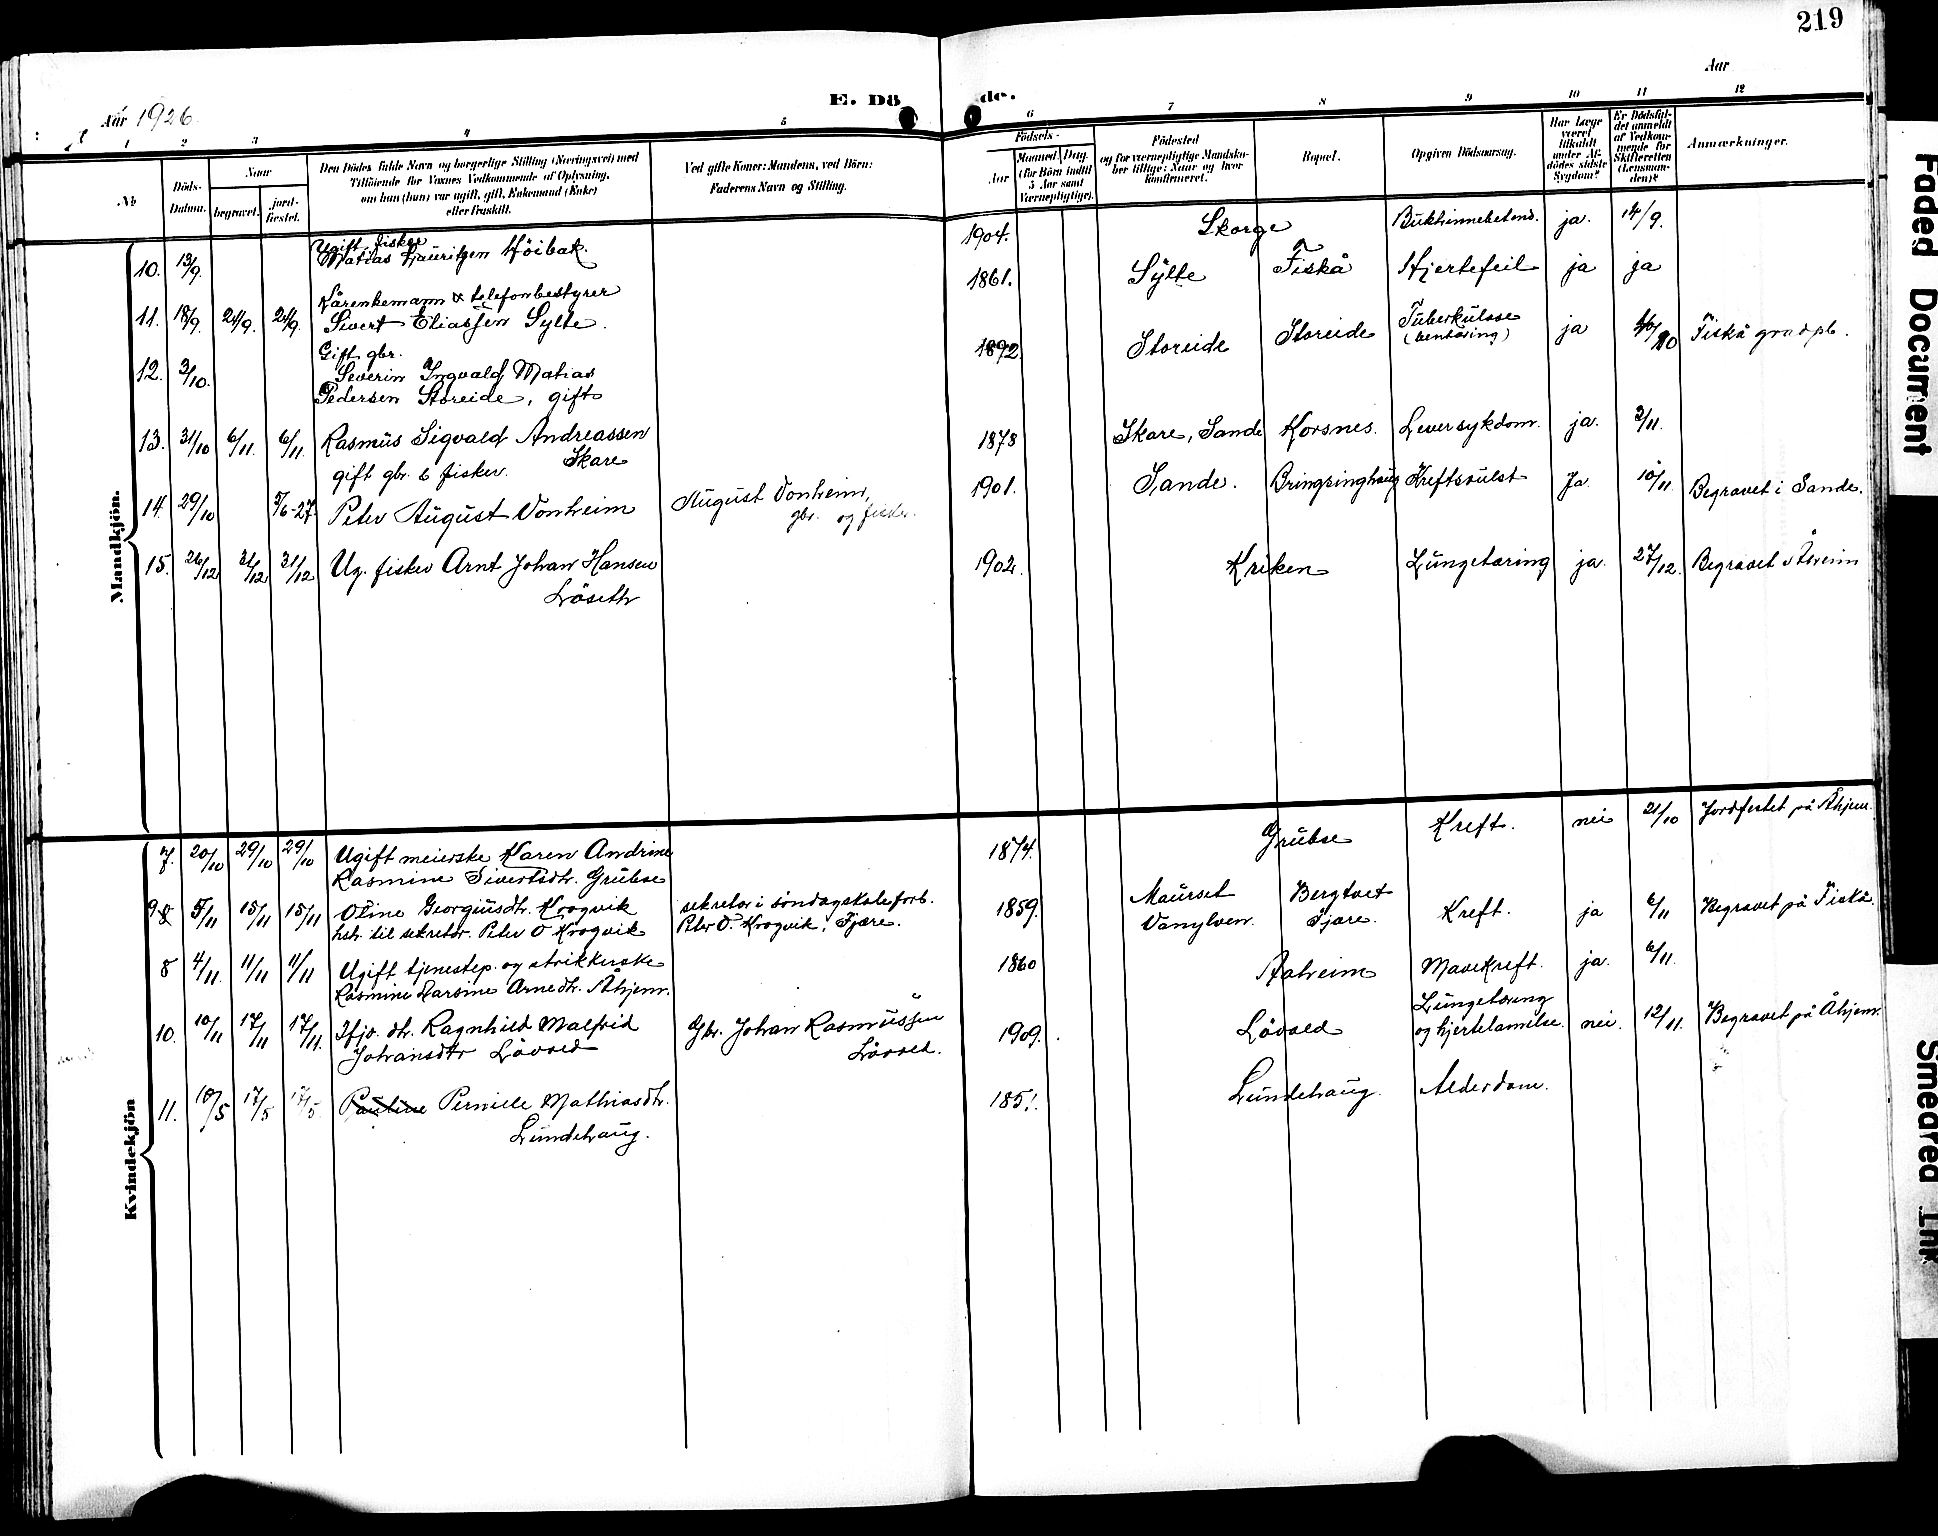 219
Aar 1926.
E. Dö de.
Aar
1 2 3 4 5 6 7 8 9 10 11 12
No.
Döds-Datum.
Naar
begravet.
jord-festet.
Den Dödes fulde Navn og borgerlige Stilling (Næringsvei) med
Tilföiende for Voxnes Vedkommende af Oplysning,
om han (hun) var ugift, gift, Enkemand (Enke)
eller fraskilt.
Ved gifte Koner: Mandens, ved Börn:
Faderens Navn og Stilling.
Födsels-
Aar
Maaned. Dag.
(for Börn indtil
5 Aar samt
Værnepligtige).
Födested
og for værnepligtige Mandsko-
ber tillige: Naar og hvor
konfirmeret.
Bopæl.
Opgiven Dödsaarsag.
Har Læge
været
tilkaldt
under Af-
dödes sidste
Sygdom?
Er Dödsfal-
det anmeldt
af Vedkom-
mende for
Skifteretten
(Lensman-
den)?
Anmærkninger.
Mandkjön.
10. 13/9. Ugift fisker
Matias Lauritzen Höibak. 1904. Skorge Bukhinnebetend. ja. 14/9.
11. 18/9. 24/9. 24/9. Kårenkemann & telefonbestyrer
Sivert Eliassen Sylte. 1861. Sylte Fiskå Hjertefeil ja ja
12. 3/10. Gift gbr.
Severin Ingvald Matias
Pedersen Storeide, gift 1892 Storeide Storeide Tuberkulose
ja Fiskå gradpl.
13. 31/10 6/11. 6/11. Rasmus Sigvald Andreassen
Skare
gift gbr. & fisker. 1878 Skare, Sande Korsnes. Leversykdom. ja. 2/11.
14. 29/10 5/6-27. Peter August Vonheim August Vonheim,
gbr. og fisker. 1901. Sande. Bringsinghaug Kreftsvulst Ja 10/11. Begravet i Sande.
15. 26/12 31/12 31/12 Ug. fisker Arnt Johan Hansen
Löseth 1902. Kriken Lungetæring ja. 27/12. Begravet i Åheim
Kvindekjön
7. 20/10 29/10 29/10 Ugift meierske Karen Andrine
Rasmine Sivertsdtr. Grubse 1874. Grubse Kreft. nei 21/10 Jordfestet på Åhjem.
9 8 5/11 15/11 15/11 Oline Georginsdtr. Krogvik
hstr. til sekretær. Peter O Krogvik sekretær i söndagskoleforb.
Peter O. Krogvik, Fjære. 1859. Maurset
Vanylven. Bergtvet
Fjære. Kreft. ja 6/11 Begravet på Fiskå.
8 4/11 11/11 11/11 Ugift tjenestep. og strikkerske
Rasmine Larsine Arnedtr. Åhjem. 1860 Aaheim Mavekreft. ja. 6/11.
10. 10/11 17/11 17/11. Hjv. dtr. Ragnhild Malfrid
Johansdtr Lövold Gbr. Johan Rasmussen
Lövold. 1909. Lövold Lungetæring
og hjertelamelse. nei. 12/11. Begravet på Åhjem.
11. 10/5 17/5 17/5 Pauline Pernille Mathiasdtr.
Lundehaug. 1851. Lundehaug. Alderdom.
Faded Document
Smeared Ink